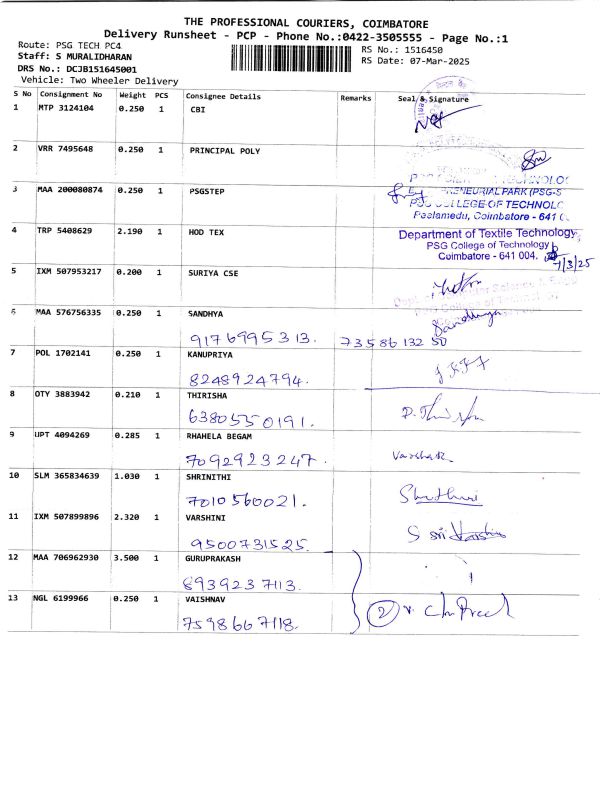 THE PROFESSIONAL COURIERS, COIMBATORE
Delivery Runsheet - PCP - Phone No.:0422-3505555 - Page No.:1
Route: PSG TECH PC4
RS No.: 1516450
Staff: S MURALIDHARAN
RS Date: 07-Mar-2025
DRS No.: DCJB151645001
Vehicle: Two Wheeler Delivery
S No Consignment No Weight PCS Consignee Details Remarks Seal & Signature
1 MTP 3124104 0.250 1 CBI
2 VRR 7495648 0.250 1 PRINCIPAL POLY
3 MAA 200080874 0.250 1 PSGSTEP
PRENEURIAL PARK (PSG-S
LLEGE OF TECHNOLO
Peelamedu, Coimbatore - 641 0
4 TRP 5408629 2.190 1 HOD TEX
Department of Textile Technology,
PSG College of Technology
Coimbatore - 641 004.
7/3/25
5 IXM 507953217 0.200 1 SURIYA CSE
6 MAA 576756335 0.250 1 SANDHYA
Sandhya
9176995313. 7358613250
7 POL 1702141 0.250 1 KANUPRIYA
8248924794.
8 OTY 3883942 0.210 1 THIRISHA
63805550191.
9 UPT 4094269 0.285 1 RHAHELA BEGAM
7092923247.
10 SLM 365834639 1.030 1 SHRINITHI
7010560021.
11 IXM 507899896 2.320 1 VARSHINI
S Sri Varshini
9500731525.
12 MAA 706962930 3.500 1 GURUPRAKASH
8939237113.
13 NGL 6199966 0.250 1 VAISHNAV
2
7598667118.